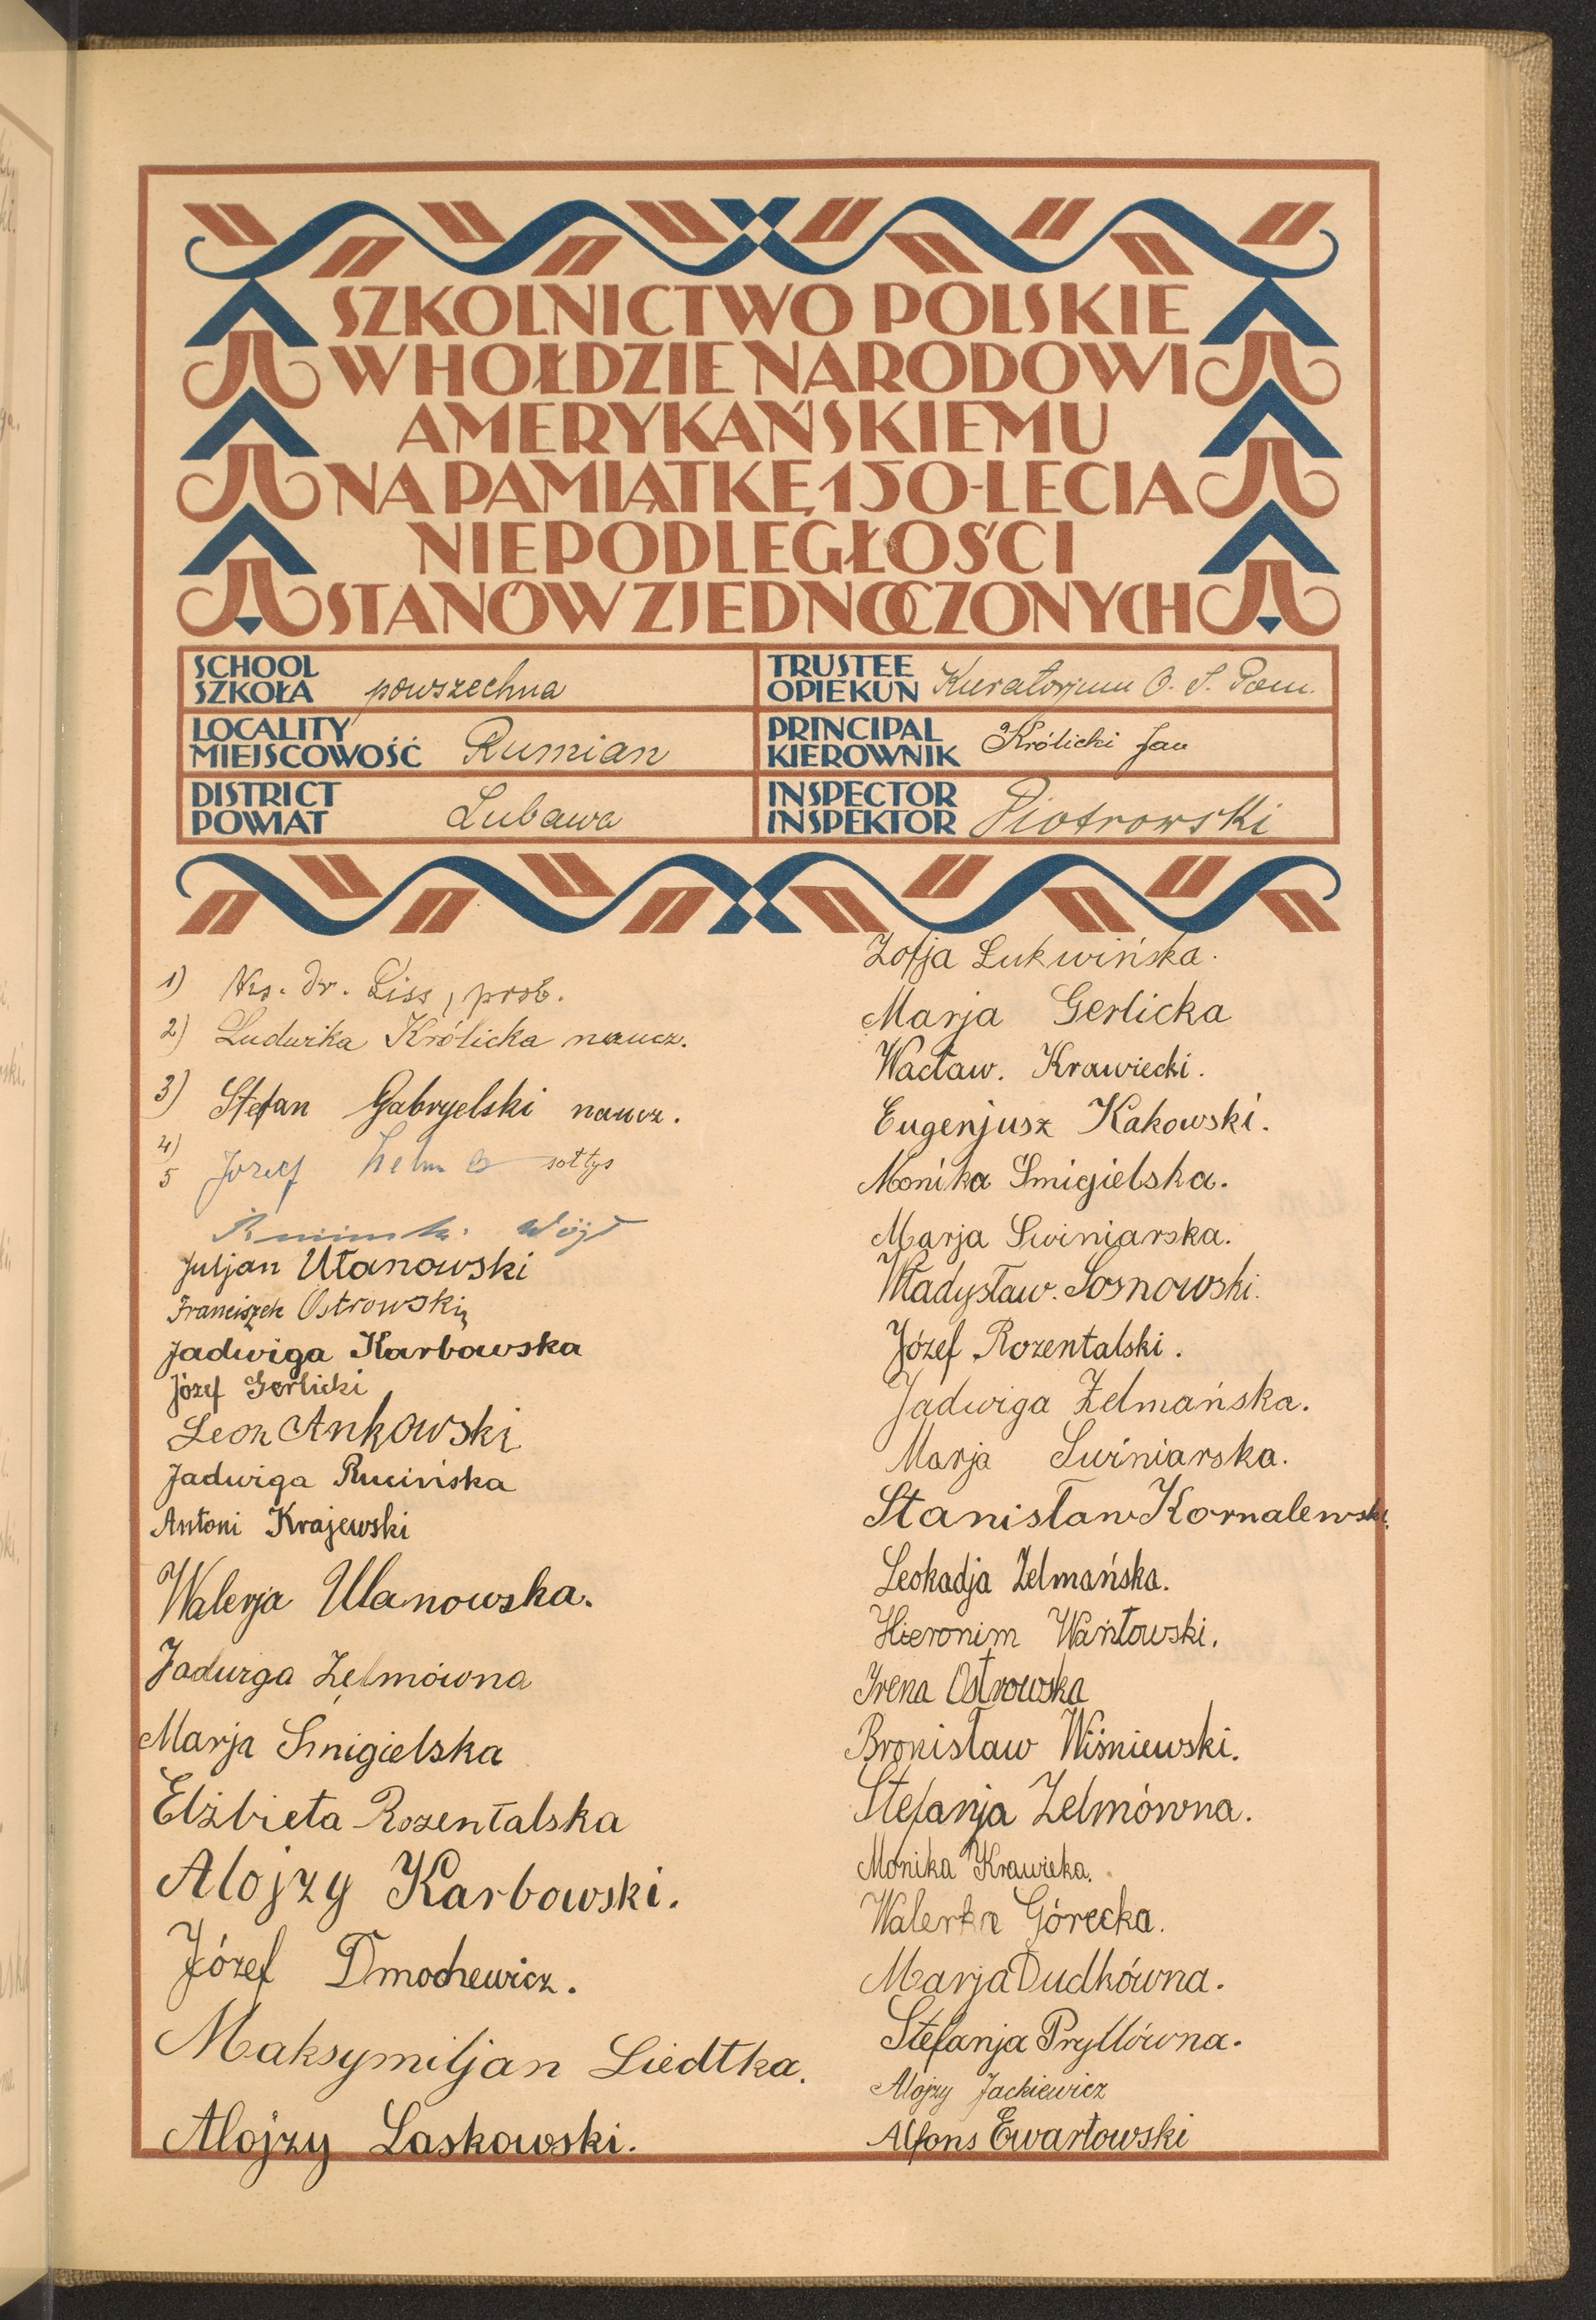 SZKOLNICTWO POLSKIE
W HOŁDZIE NARODOWI
AMERYKAŃSKIEMU
NA PAMIĄTKĘ 150-LECIA
NIEPODLEGŁOŚCI
STANÓW ZJEDNOCZONYCH
SCHOOL
SZKOŁA powszechna
TRUSTEE
OPIEKUN Kuratorjum O. S. Pom.
LOCALITY
MIEJSCOWOŚĆ Rumian
PRINCIPAL
KIEROWNIK Królicki Jan
DISTRICT
POWIAT Lubawa
INSPECTOR
INSPEKTOR Piotrowski
1) Ks. dr. Liss, prob.
2) Ludwika Królicka naucz.
3) Stefan Gabryelski naucz.
4)
5 Józef sołtys
Wójt
Juljan Ułanowski
Franciszek Ostrowski
Jadwiga Karbowska
Józef Gerlicki
Leon Ankowski
Jadwiga Rucińska
Antoni Krajewski
Walerja Ulanowska.
Jadwiga Zelmówna
Marja Smigielska
Elżbieta Rozentalska
Alojzy Karbowski.
Józef Dmochewicz.
Maksymiljan Liedtka.
Alojzy Laskowski.
Zofja Lukwińska.
Marja Gerlicka
Wacław. Krawiecki.
Eugenjusz Kakowski.
Monika Smigielska.
Marja Swiniarska.
Władysław. Sosnowski.
Józef Rozentalski.
Jadwiga Zelmańska.
Marja Swiniarska.
Stanisław Kornalewski.
Leokadja Zelmańska.
Hieronim Wańtowski.
Irena Ostrowska
Bronisław Wiśniewski.
Stefanja Zelmówna.
Monika Krawiecka.
Walerka Górecka.
Marja Dudkówna.
Stefanja Pryllówna.
Alojzy Jackiewicz
Alfons Ewartowski